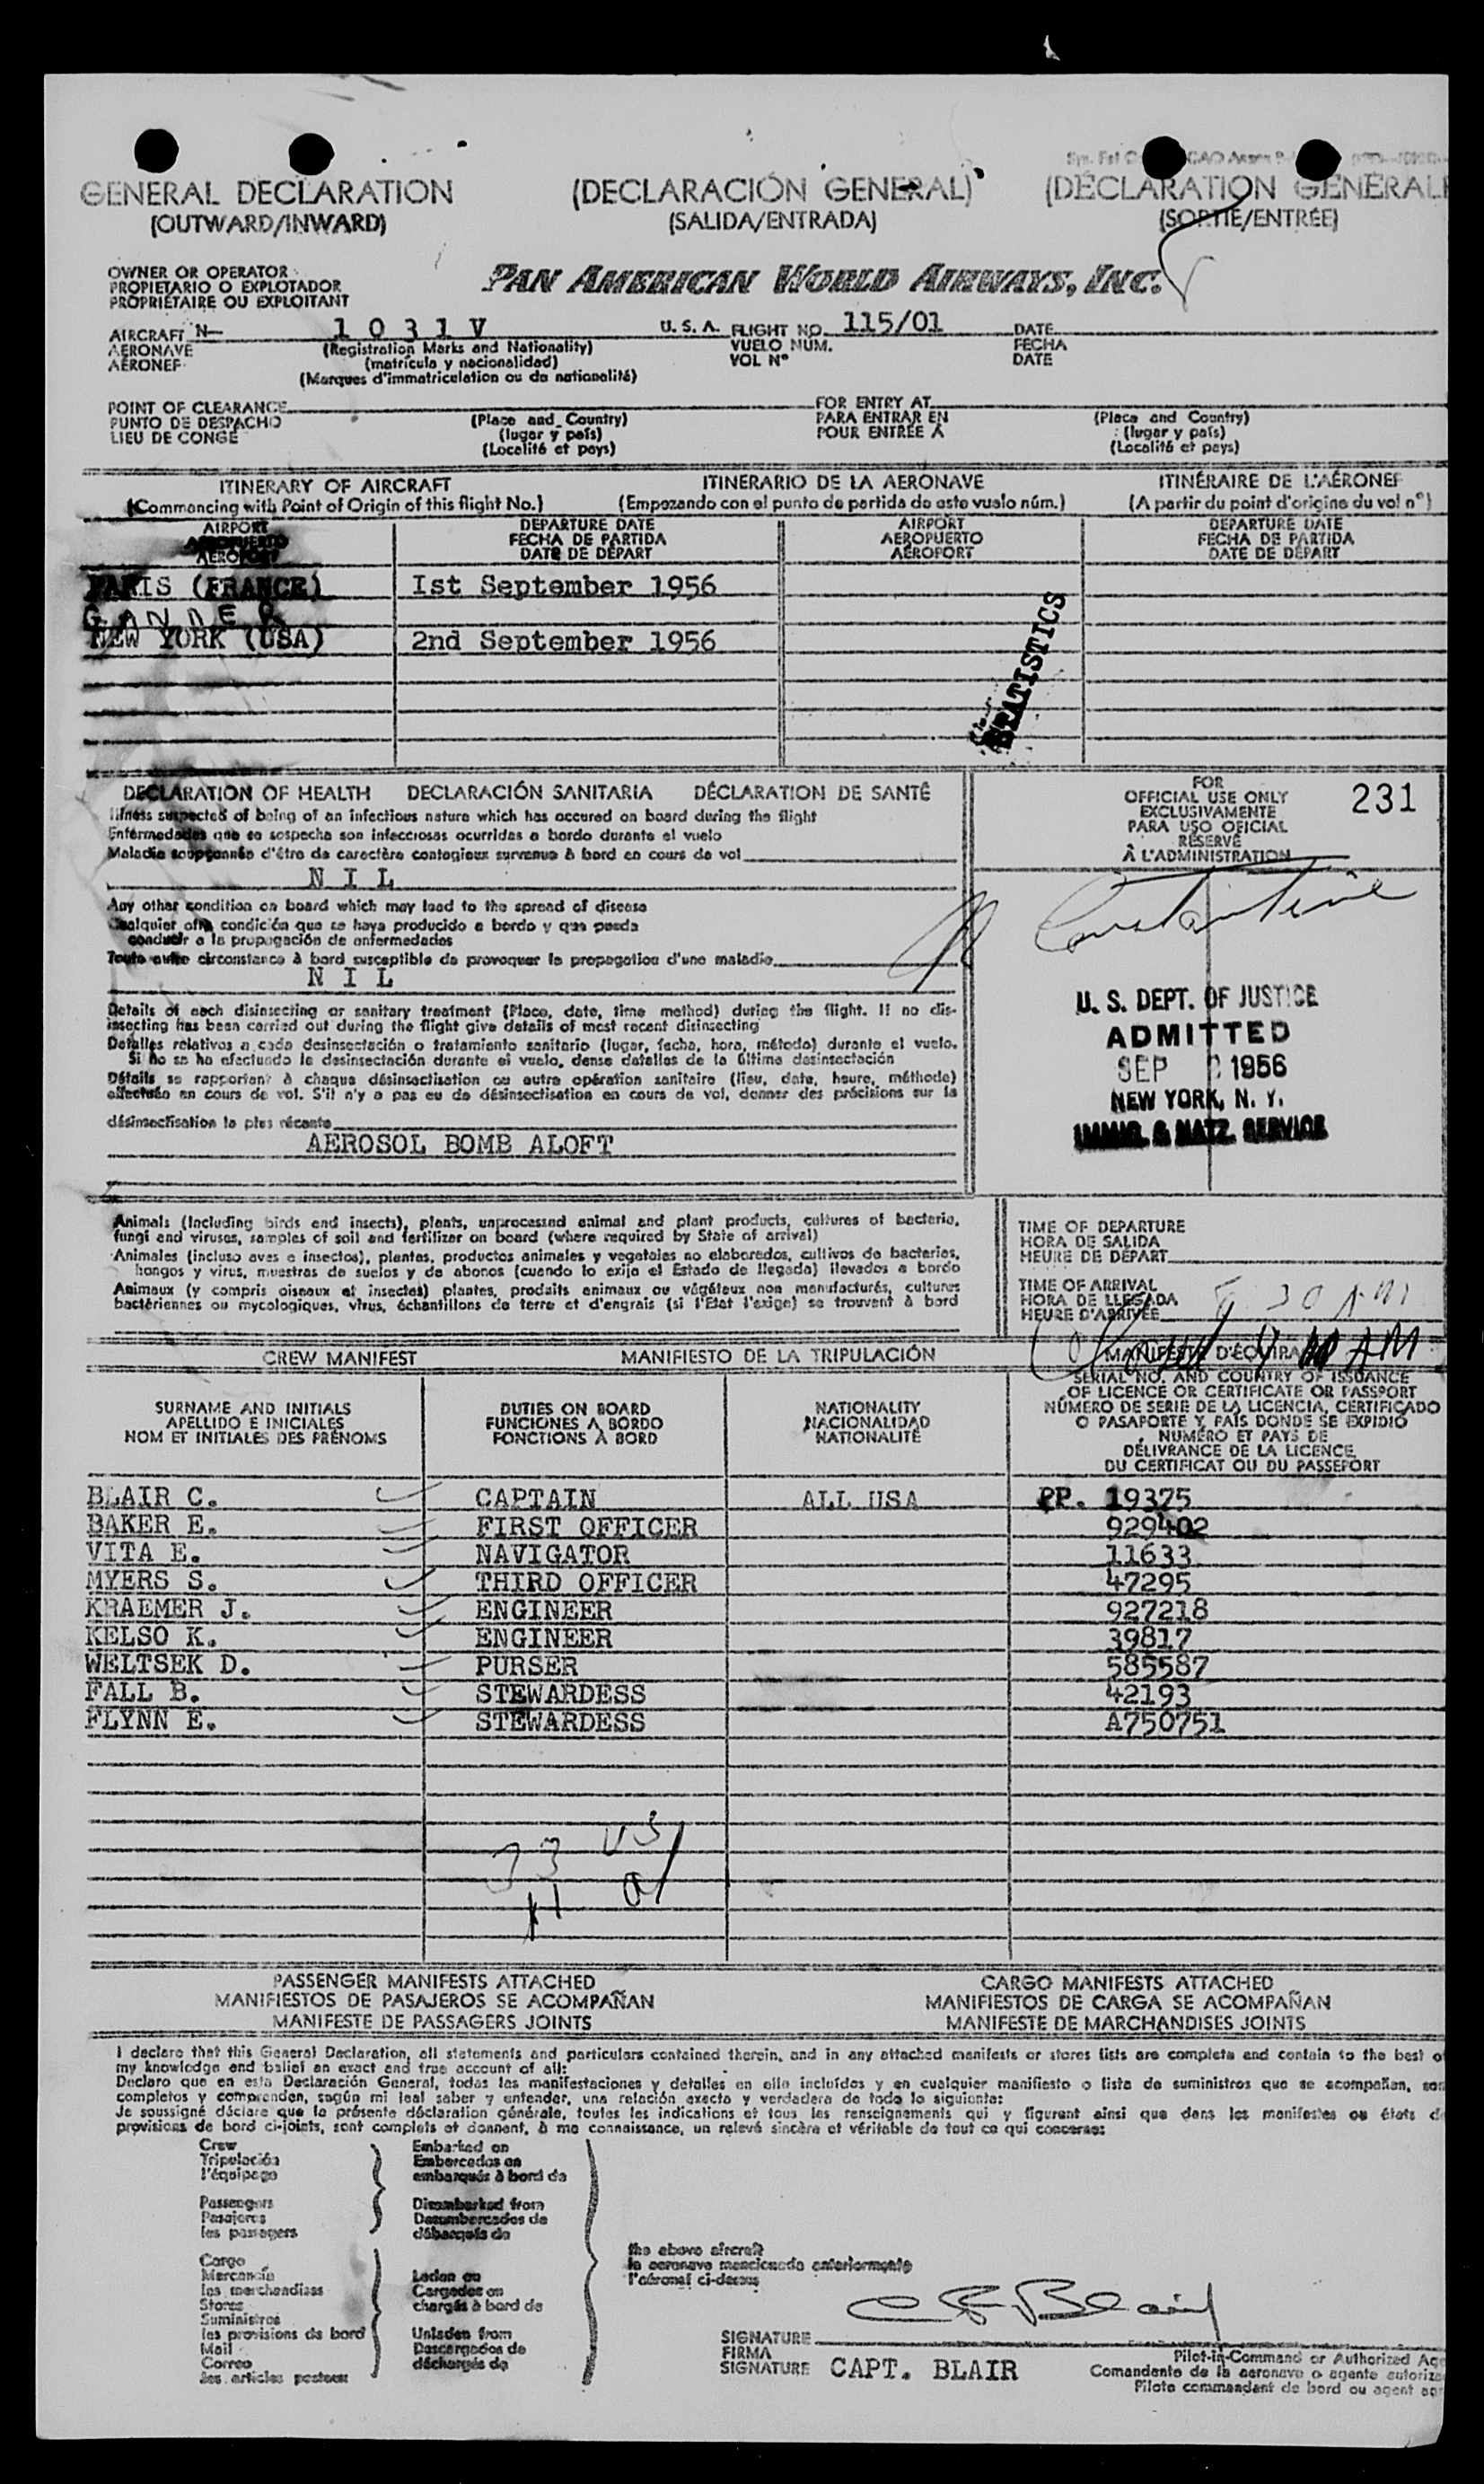 GENERAL DECLARATION (DECLARACIÓN GENERAL) (DÉCLARATION GÉNÉRAL
(OUTWARD/INWARD) (SALIDA/ENTRADA) (SORTIE/ENTRÉE)
OWNER OR OPERATOR
PROPIETARIO O EXPLOTADOR
PROPRIÉTAIRE OU EXPLOITANT
PAN AMERICAN WORLD AIRWAYS, INC.
AIRCRAFT N- 1 0 3 1 V U. S. A. FLIGHT NO. 115/01 DATE
AERONAVE (Registration Marks and Nationality) VUELO NÚM. FECHA
AÉRONEF (matrícula y nacionalidad) VOL Nº DATE
(Marques d'immatriculation ou de nationalité)
POINT OF CLEARANCE FOR ENTRY AT
PUNTO DE DESPACHO (Place and Country) PARA ENTRAR EN (Place and Country)
LIEU DE CONGÉ (lugar y país) POUR ENTRÉE À (lugar y país)
(Localité et pays) (Localité et pays)
ITINERARY OF AIRCRAFT ITINERARIO DE LA AERONAVE ITINÉRAIRE DE L'AÉRONEF
(Commencing with Point of Origin of this flight No.) (Empezando con el punto de partida de este vuelo núm.) (A partir du point d'origine du vol nº)
AIRPORT DEPARTURE DATE AIRPORT DEPARTURE DATE
AEROPUERTO FECHA DE PARTIDA AEROPUERTO FECHA DE PARTIDA
AÉROPORT DATE DE DÉPART AÉROPORT DATE DE DÉPART
PARIS (FRANCE) Ist September 1956
GANDER
NEW YORK (USA) 2nd September 1956
STATISTICS
DECLARATION OF HEALTH DECLARACIÓN SANITARIA DÉCLARATION DE SANTÉ
Illness suspected of being of an infectious nature which has occured on board during the flight
Enfermedades que se sospecha son infecciosas ocurridas a bordo durante el vuelo
Maladie soupçonnée d'être de caractère contagieux survenue à bord en cours de vol
N I L
Any other condition on board which may lead to the spread of disease
Cualquier otra condición que se haya producido a bordo y que pueda
conducir a la propagación de enfermedades
Toute autre circonstance à bord susceptible de provoquer la propagation d'une maladie
N I L
Details of each disinsecting or sanitary treatment (Place, date, time method) during the flight. If no dis-
insecting has been carried out during the flight give details of most recent disinsecting
Detalles relativos a cada desinsectación o tratamiento sanitario (lugar, fecha, hora, método) durante el vuelo.
Si no se ha efectuado la desinsectación durante el vuelo, dense detalles de la última desinsectación
Détails se rapportant à chaque désinsectisation ou autre opération sanitaire (lieu, date, heure, méthode)
effectuée en cours de vol. S'il n'y a pas eu de désinsectisation en cours de vol, donner des précisions sur la
désinsectisation la plus récente
AEROSOL BOMB ALOFT
FOR
OFFICIAL USE ONLY
EXCLUSIVAMENTE
PARA USO OFICIAL
RÉSERVÉ
À L'ADMINISTRATION
231
Constantine
U. S. DEPT. OF JUSTICE
ADMITTED
SEP 1956
NEW YORK, N. Y.
IMMIG. & NATZ. SERVICE
Animals (Including birds and insects), plants, unprocessed animal and plant products, cultures of bacteria,
fungi and viruses, samples of soil and fertilizer on board (where required by State of arrival)
Animales (incluso aves e insectos), plantas, productos animales y vegetales no elaborados, cultivos de bacterias,
hongos y virus, muestras de suelos y de abonos (cuando lo exija el Estado de llegada) llevados a bordo
Animaux (y compris oiseaux et insectes) plantes, produits animaux ou végétaux non manufacturés, cultures
bactériennes ou mycologiques, virus, échantillons de terre et d'engrais (si l'Etat l'exige) se trouvant à bord
TIME OF DEPARTURE
HORA DE SALIDA
HEURE DE DÉPART
TIME OF ARRIVAL
HORA DE LLEGADA
HEURE D'ARRIVÉE 30 AM
AM
CREW MANIFEST MANIFIESTO DE LA TRIPULACIÓN MANIFESTE D'ÉQUIPA
SURNAME AND INITIALS
APELLIDO E INICIALES
NOM ET INITIALES DES PRÉNOMS
DUTIES ON BOARD
FUNCIONES A BORDO
FONCTIONS À BORD
NATIONALITY
NACIONALIDAD
NATIONALITÉ
SERIAL NO. AND COUNTRY OF ISSUANCE
OF LICENCE OR CERTIFICATE OR PASSPORT
NÚMERO DE SERIE DE LA LICENCIA, CERTIFICADO
O PASAPORTE Y PAÍS DONDE SE EXPIDIÓ
NUMÉRO ET PAYS DE
DÉLIVRANCE DE LA LICENCE,
DU CERTIFICAT OU DU PASSEPORT
BLAIR C. CAPTAIN ALL USA PP. 19375
BAKER E. FIRST OFFICER 929402
VITA E. NAVIGATOR 11633
MYERS S. THIRD OFFICER 47295
KRAEMER J. ENGINEER 927218
KELSO K. ENGINEER 39817
WELTSEK D. PURSER 585587
FALL B. STEWARDESS 42193
FLYNN E. STEWARDESS A750751
33 US
11 a
PASSENGER MANIFESTS ATTACHED CARGO MANIFESTS ATTACHED
MANIFIESTOS DE PASAJEROS SE ACOMPAÑAN MANIFIESTOS DE CARGA SE ACOMPAÑAN
MANIFESTE DE PASSAGERS JOINTS MANIFESTE DE MARCHANDISES JOINTS
I declare that this General Declaration, all statements and particulars contained therein, and in any attached manifests or stores lists are complete and contain to the best of
my knowledge and belief an exact and true account of all:
Declaro que en esta Declaración General, todas las manifestaciones y detalles en ella incluídos y en cualquier manifiesto o lista de suministros que se acompañan, son
completos y comprenden, según mi leal saber y entender, una relación exacta y verdadera de todo lo siguiente:
Je soussigné déclare que la présente déclaration générale, toutes les indications et tous les renseignements qui y figurent ainsi que dans les manifestes ou états d
provisions de bord ci-joints, sont complets et donnent, à ma connaissance, un relevé sincère et véritable de tout ce qui concerne:
Crew Embarked on
Tripulación Embarcados en
l'équipage embarqués à bord de
Passengers Disembarked from
Pasajeros Desembarcados de
les passagers débarqués de
the above aircraft
la aeronave mencionada anteriormente
l'aéronef ci-dessus
Cargo
Mercancía Laden on
les merchandises Cargados en
Stores chargés à bord de
Suministros
les provisions de bord Unladen from
Mail Descargados de
Correo déchargés de
les articles postaux
C F Blair
SIGNATURE
FIRMA
SIGNATURE CAPT. BLAIR
Pilot-in-Command or Authorized Age
Comandante de la aeronave o agente autoriza
Pilote commandant de bord ou agent agr